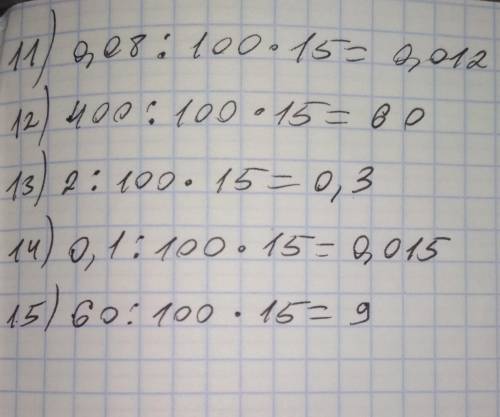 11) 0,08 : 100 · 15 = 0,012
12) 400 : 100 · 15 = 60
13) 2 : 100 · 15 = 0,3
14) 0,1 : 100 · 15 = 0,015
15) 60 : 100 · 15 = 9